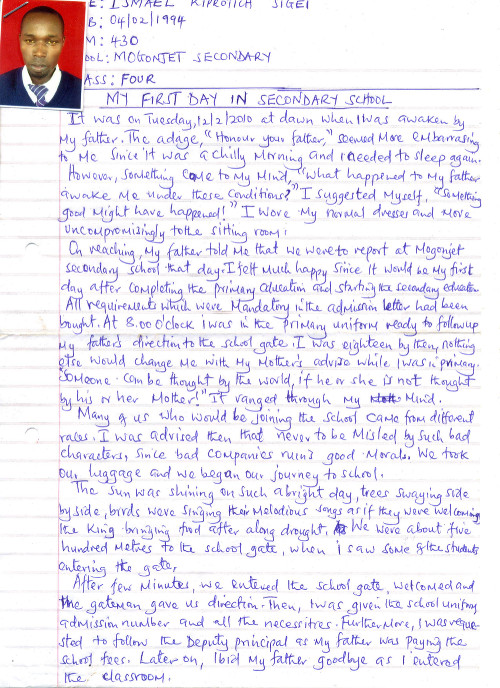 E: ISMAEL KIPROTICH SIGEI
B: 04/02/1994
M: 430
OOL: MOGONJET SECONDARY
ASS: FOUR
MY FIRST DAY IN SECONDARY SCHOOL
It was on Tuesday, 12/2/2010 at dawn when I was awaken by
My father. The adage, "Honour your father," seemed More embarrasing
to Me since it was a chilly Morning and i needed to sleep again.
However, something came to My Mind, "what happened to My father
awake Me under these conditions?" I suggested Myself, "something
good Might have happened!" I wore My normal dresses and Move
uncompromizingly to the sitting room.
On reaching, My father told Me that we were to report at Mogonjet
secondary school that day. I felt Much happy since It would be My first
day after completing the primary education and starting the secondary education
All requirements which were Mandatory in the admission letter had been
bought. At 8.00 o'clock i was in the primary uniform ready to follow up
My father's direction to the school gate. I was eighteen by then, nothing
else would change Me with My Mother's advise while I was in primary.
"Someone can be thought by the world, if he or she is not thought
by his or her Mother!" It ranged through My Mind.
Many of us who would be joining the school came from different
races. I was advised then that never to be Misled by such bad
characters, since bad companies ruin's good Morals. We took
our luggage and we began our journey to school.
The sun was shining on such a bright day, trees swaying side
by side, birds were singing their Melodious songs as if they were welcoming
the King bringing food after along drought. We were about five
hundred Metres to the school gate, when i saw some of the students
entering the gate.
After few Minutes, we entered the school gate, welcomed and
the gateman gave us direction. Then, I was given the school uniform,
admission number and all the necessitres. Furthermore, I was reque-
sted to follow the Deputy principal as My father was paying the
school fees. Later on, I bid My father goodbye as I entered
the classroom.